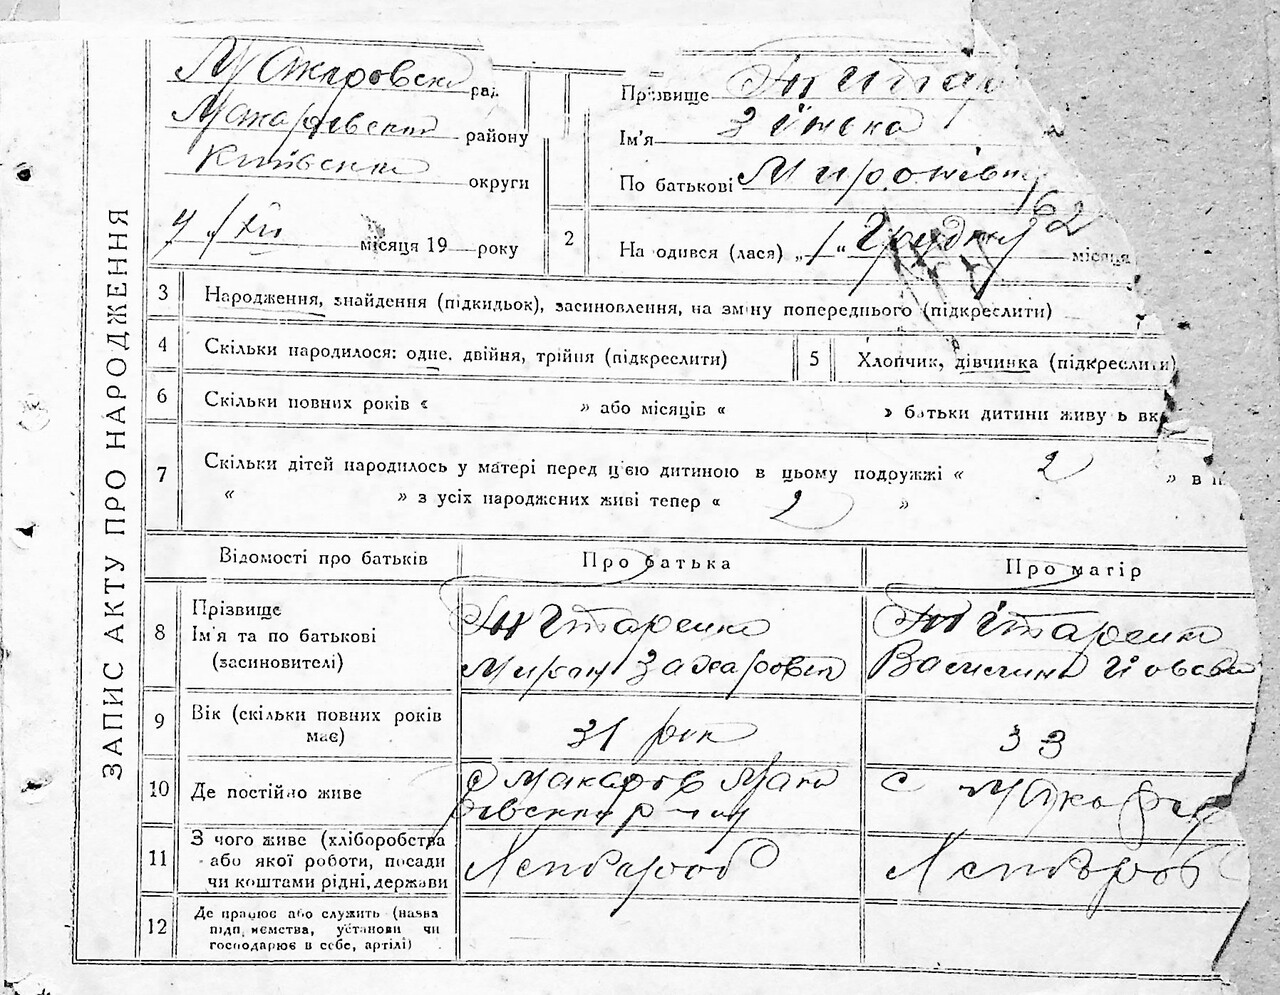 ЗАПИС АКТУ ПРО НАРОДЖЕННЯ
Макаровськ рад
Макарівськ району
Київськ округи
4 „ XII місяця 19 року
Прізвище Титар
Ім'я Зінька
По батькові Миронівн
2 На одився (лася) „ 1 “ Грудня місяця
62
3 Народження, знайдення (підкидьок), засиновлення, на зміну попереднього (підкреслити)
4 Скільки народилося: одне. двійня, трійня (підкреслити)
5 Хлопчик, дівчинка (підкреслити)
6 Скільки повних років « » або місяців « » батьки дитини живу ь вк
7 Скільки дітей народилось у матері перед цією дитиною в цьому подружжі « 2 » в п
« » з усіх народжених живі тепер « 2 »
Відомості про батьків Про батька Про матір
8 Прізвище
Ім'я та по батькові
(засиновителі)
Титаренко
Мирон Захарович
Тітаренко
Василина
9 Вік (скільки повних років
має)
31 рік
33
10 Де постійно живе
с Макаров Мака
рівськ
с Макар
11 З чого живе (хліборобства
або якої роботи, посади
чи коштами рідні, держави
Хлібороб
Хлібороб
12 Де працює або служить (назва
підп иємства, установи чи
господарює в себе, артілі)